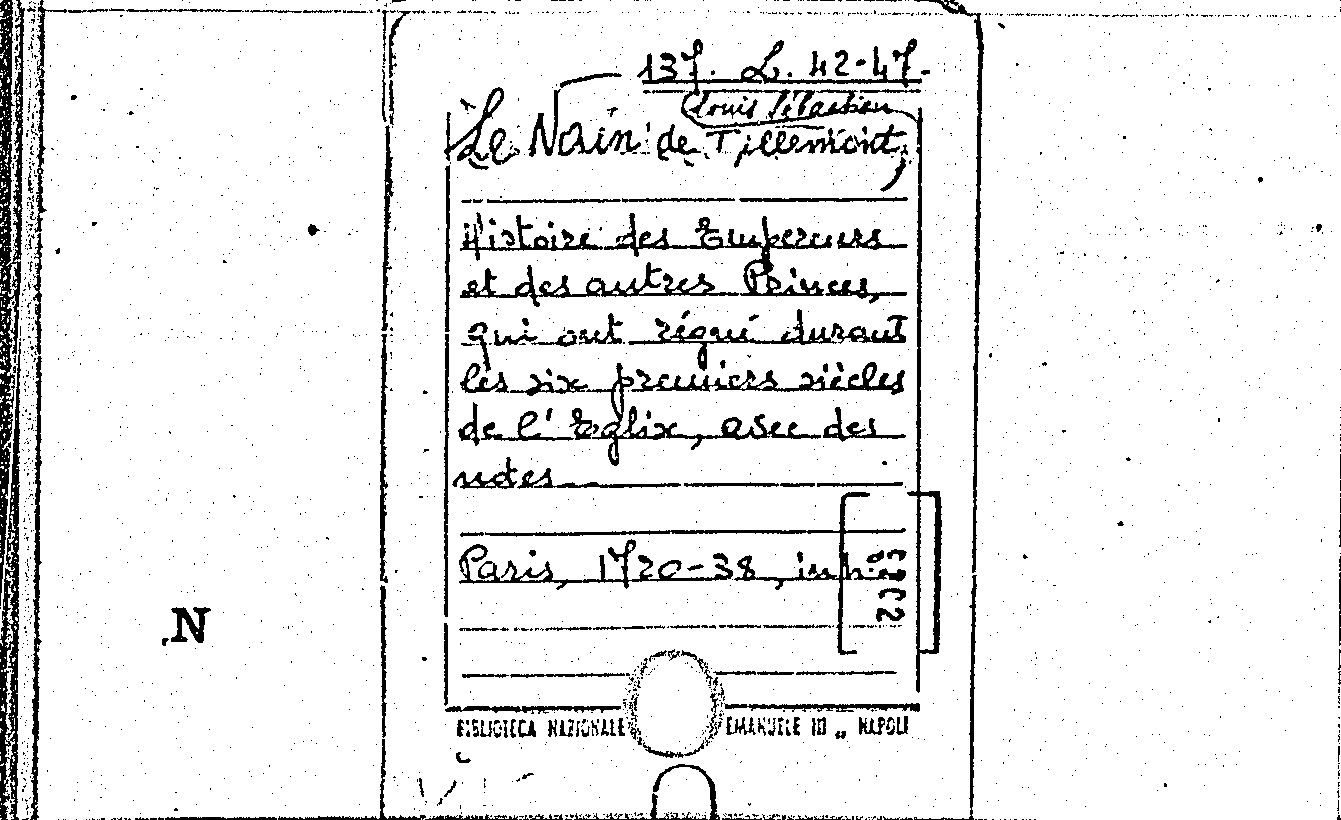 137. L. 42-47.
Louis Sébastien
Le Nain de Tillemont,
Histoire des Empereurs
et des autres Princes,
qui ont régné durant
les six premiers siècles
de l' Eglise, avec des
notes
Paris, 1720-38, in
N
BIBLIOTECA NAZIONALE EMANUELE III „ NAPOLI